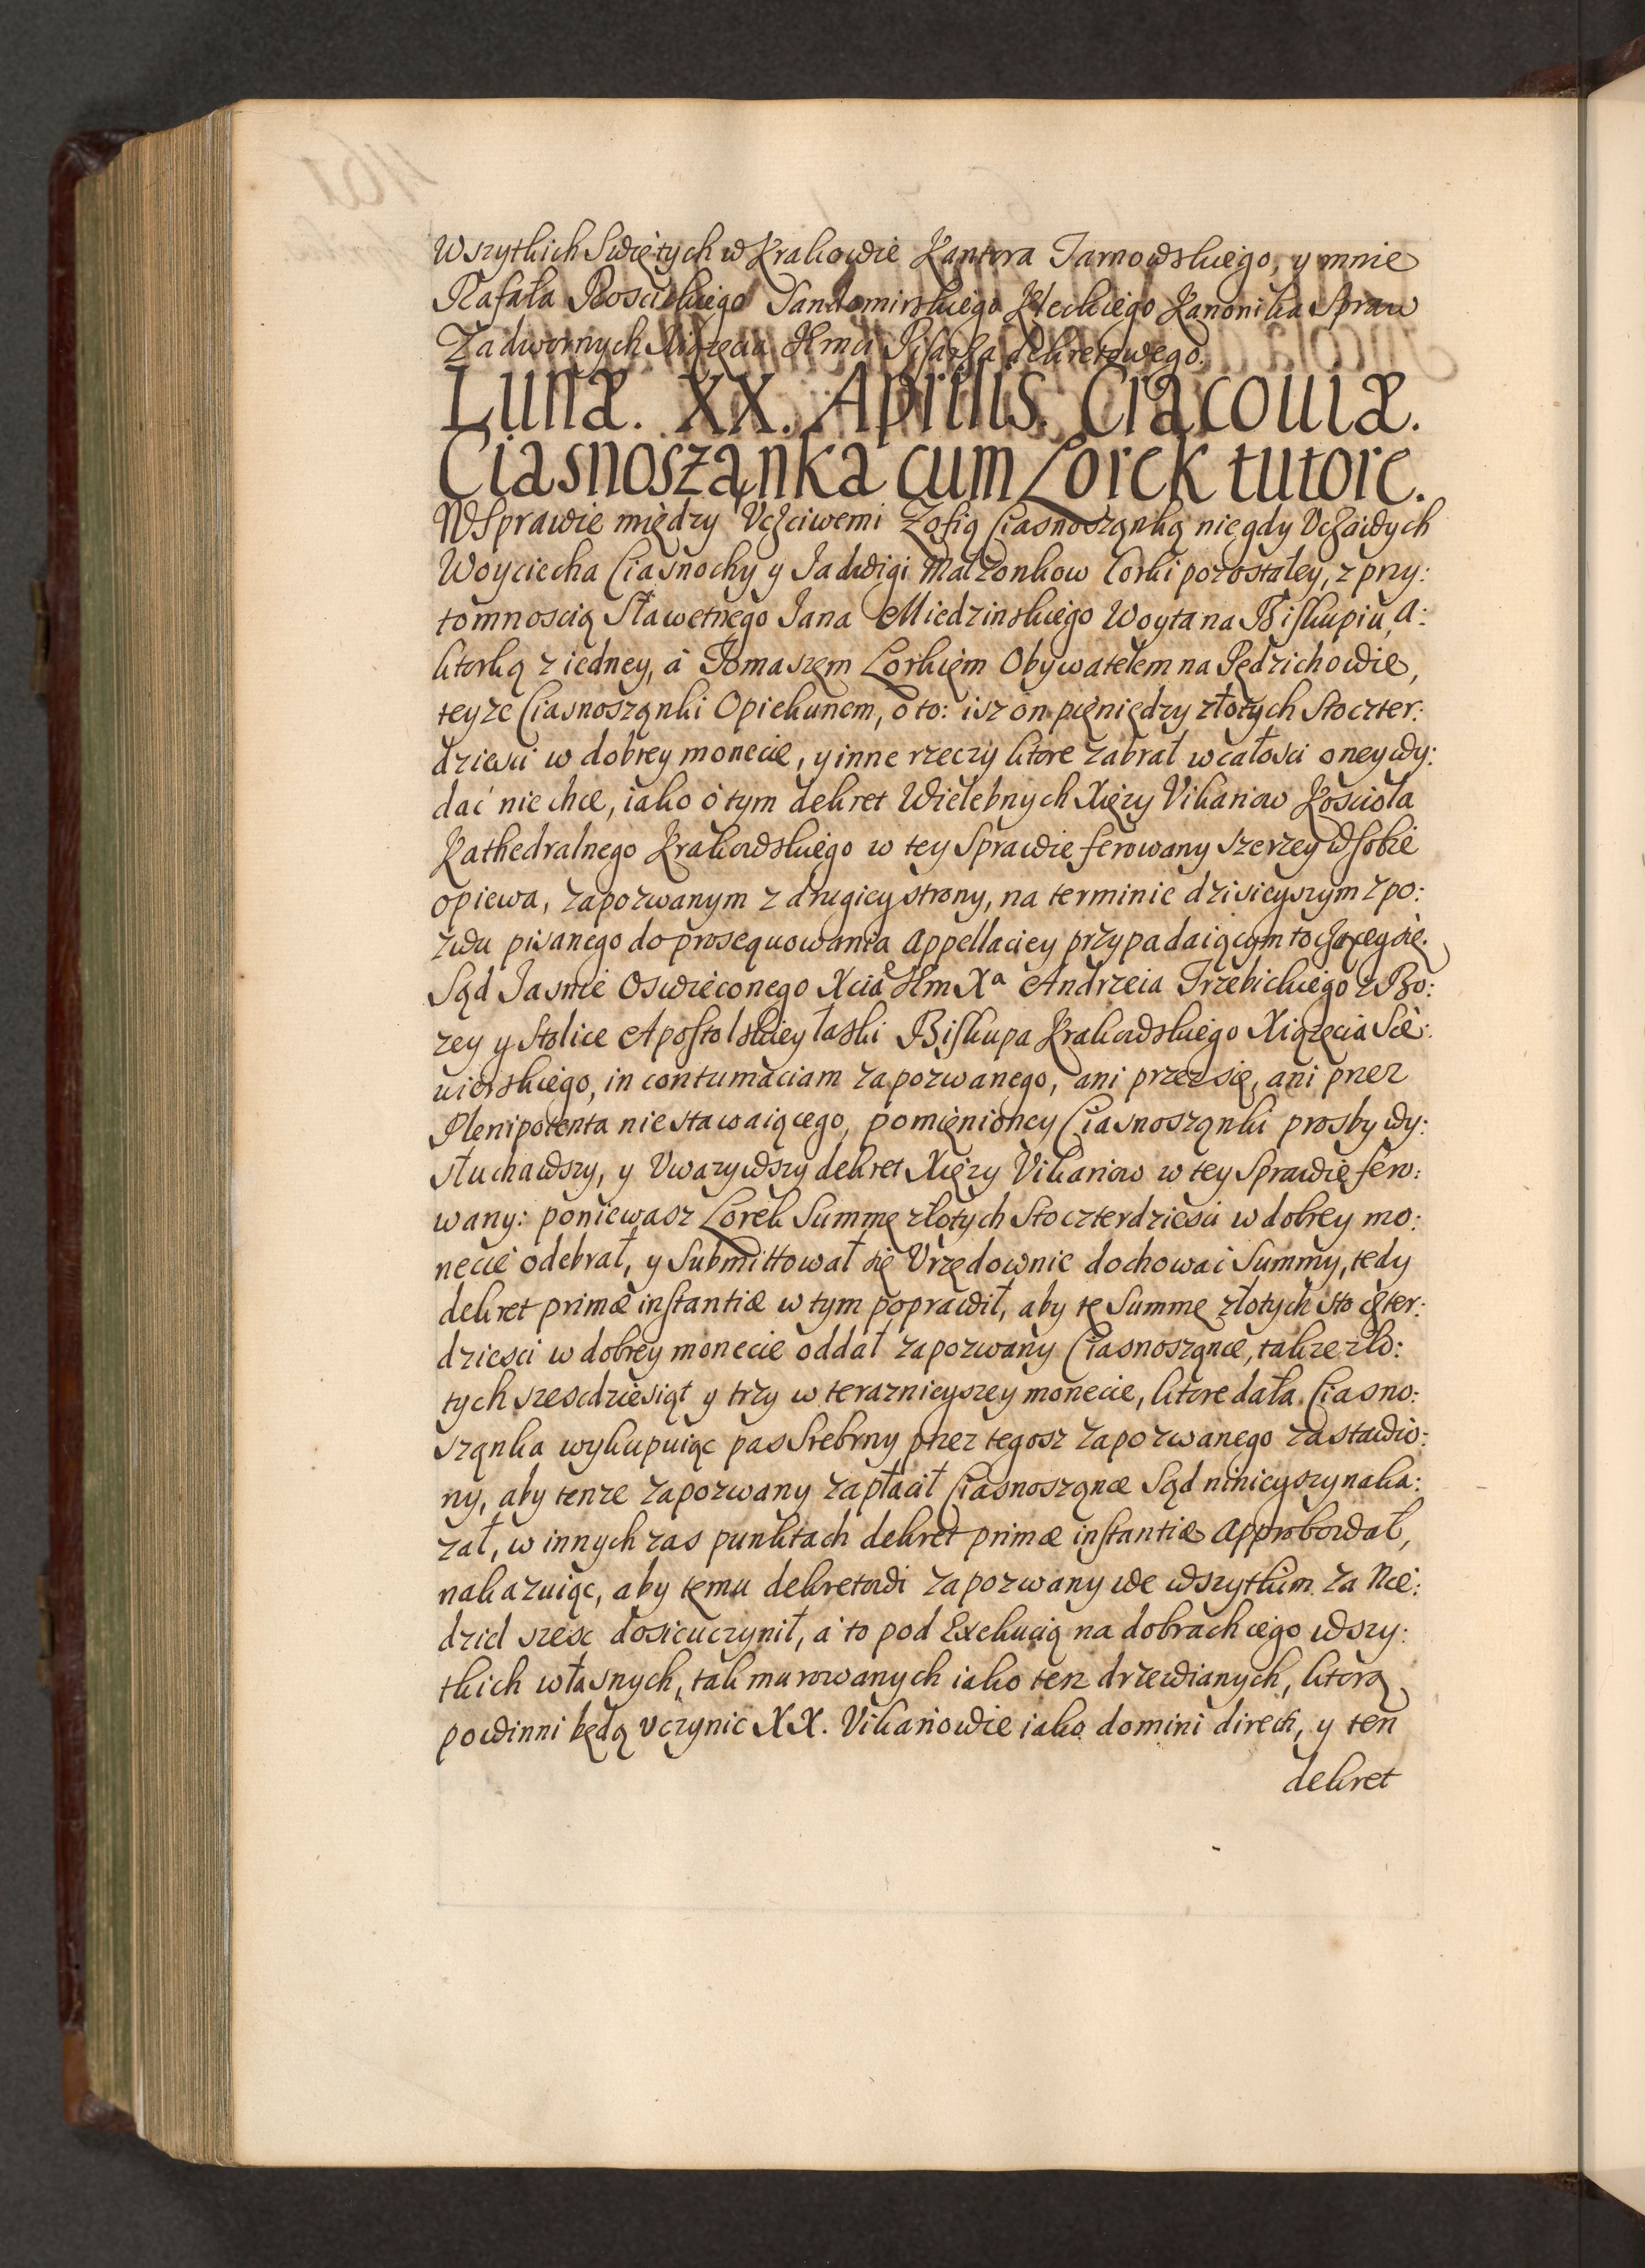 Wszytkich Swiętych w Krakowie Kantora Tarnowskiego, y mnie
Rafała Roscickiego Sandomirskiego Kieckiego Kanonika Spraw
Zadwornych Xiązęcia Jłmci Pisarza dekretowego.
Lunæ. XX. Aprilis. Cracouiæ.
Ciasnosząnka cum Lorek tutore.
W Sprawie między Vczciwemi Zofią Ciasnosząnką niegdy Vczciwych
Woyciecha Ciasnochy y Jadwigi Małzonkow Corki pozostałey, z przy:
tomnoscią Sławetnego Jana Miedzinskiego Woyta na Biskupiu, A:
ktorką z iedney, á Tomaszem Lorkiem Obywatelem na Pędzichowie,
teyze Ciasnosząnki Opiekunem, o to: isz on pięniędzy złotych Stoczter:
dziesci w dobrey monecie, y inne rzeczy ktore zabrał w całosci oney wy:
dać nie chce, iako o tym dekret Wielebnych Xięzy Vikariow Koscioła
Kathedralnego Krakowskiego w tey Sprawie ferowany szerzey w sobie
opiewa, zapozwanym z drugiey strony, na terminie dzisieyszym z po:
zwu pisanego do prosequowania Appellaciey przypadaiącym toczącey się.
Sąd Jasnie Oswieconego Xcia Jłm Xa Andrzeia Trzebickiego z Bo:
zey y Stolice Apostolskiey łaski Biskupa Krakowskiego Xiązęcia Sie:
wierskiego, in contumaciam zapozwanego, ani przez się, ani przez
Plenipotenta nie stawaiącego, pomięnioney Ciasnosząnki prosby wy:
słuchawszy, y Vwazywszy dekret Xięzy Vikariow w tey Sprawie fero:
wany: poniewasz Lorek Summę złotych Stoczterdziesci w dobrey mo:
necie odebrał, y Submittował się Vrzędownie dochowac Summy, tedy
dekret primæ instantiæ w tym poprawił, aby tę Summę złotych sto czter:
dziesci w dobrey monecie oddał zapozwany Ciasnosząnce, takze zło:
tych szescdziesiąt y trzy w teraznieyszey monecie, ktore dała Ciasno:
sząnka wykupuiąc pas Srebrny przez tegosz zapozwanego zastawio:
ny, aby tenze zapozwany zapłacił Ciasnosząnce Sąd ninieyszy naka:
zał, w innych zas punktach dekret primæ instantiæ Approbował,
nakazuiąc, aby temu dekretowi zapozwany we wszytkim za Nie:
dziel szesc dosic uczynił, á to pod Exekucią na dobrach iego wszy:
tkich własnych, tak murowanych iako tesz drzewianych, ktorą
powinni będą Vczynic XX. Vikariowie iako domini directi, y ten
dekret